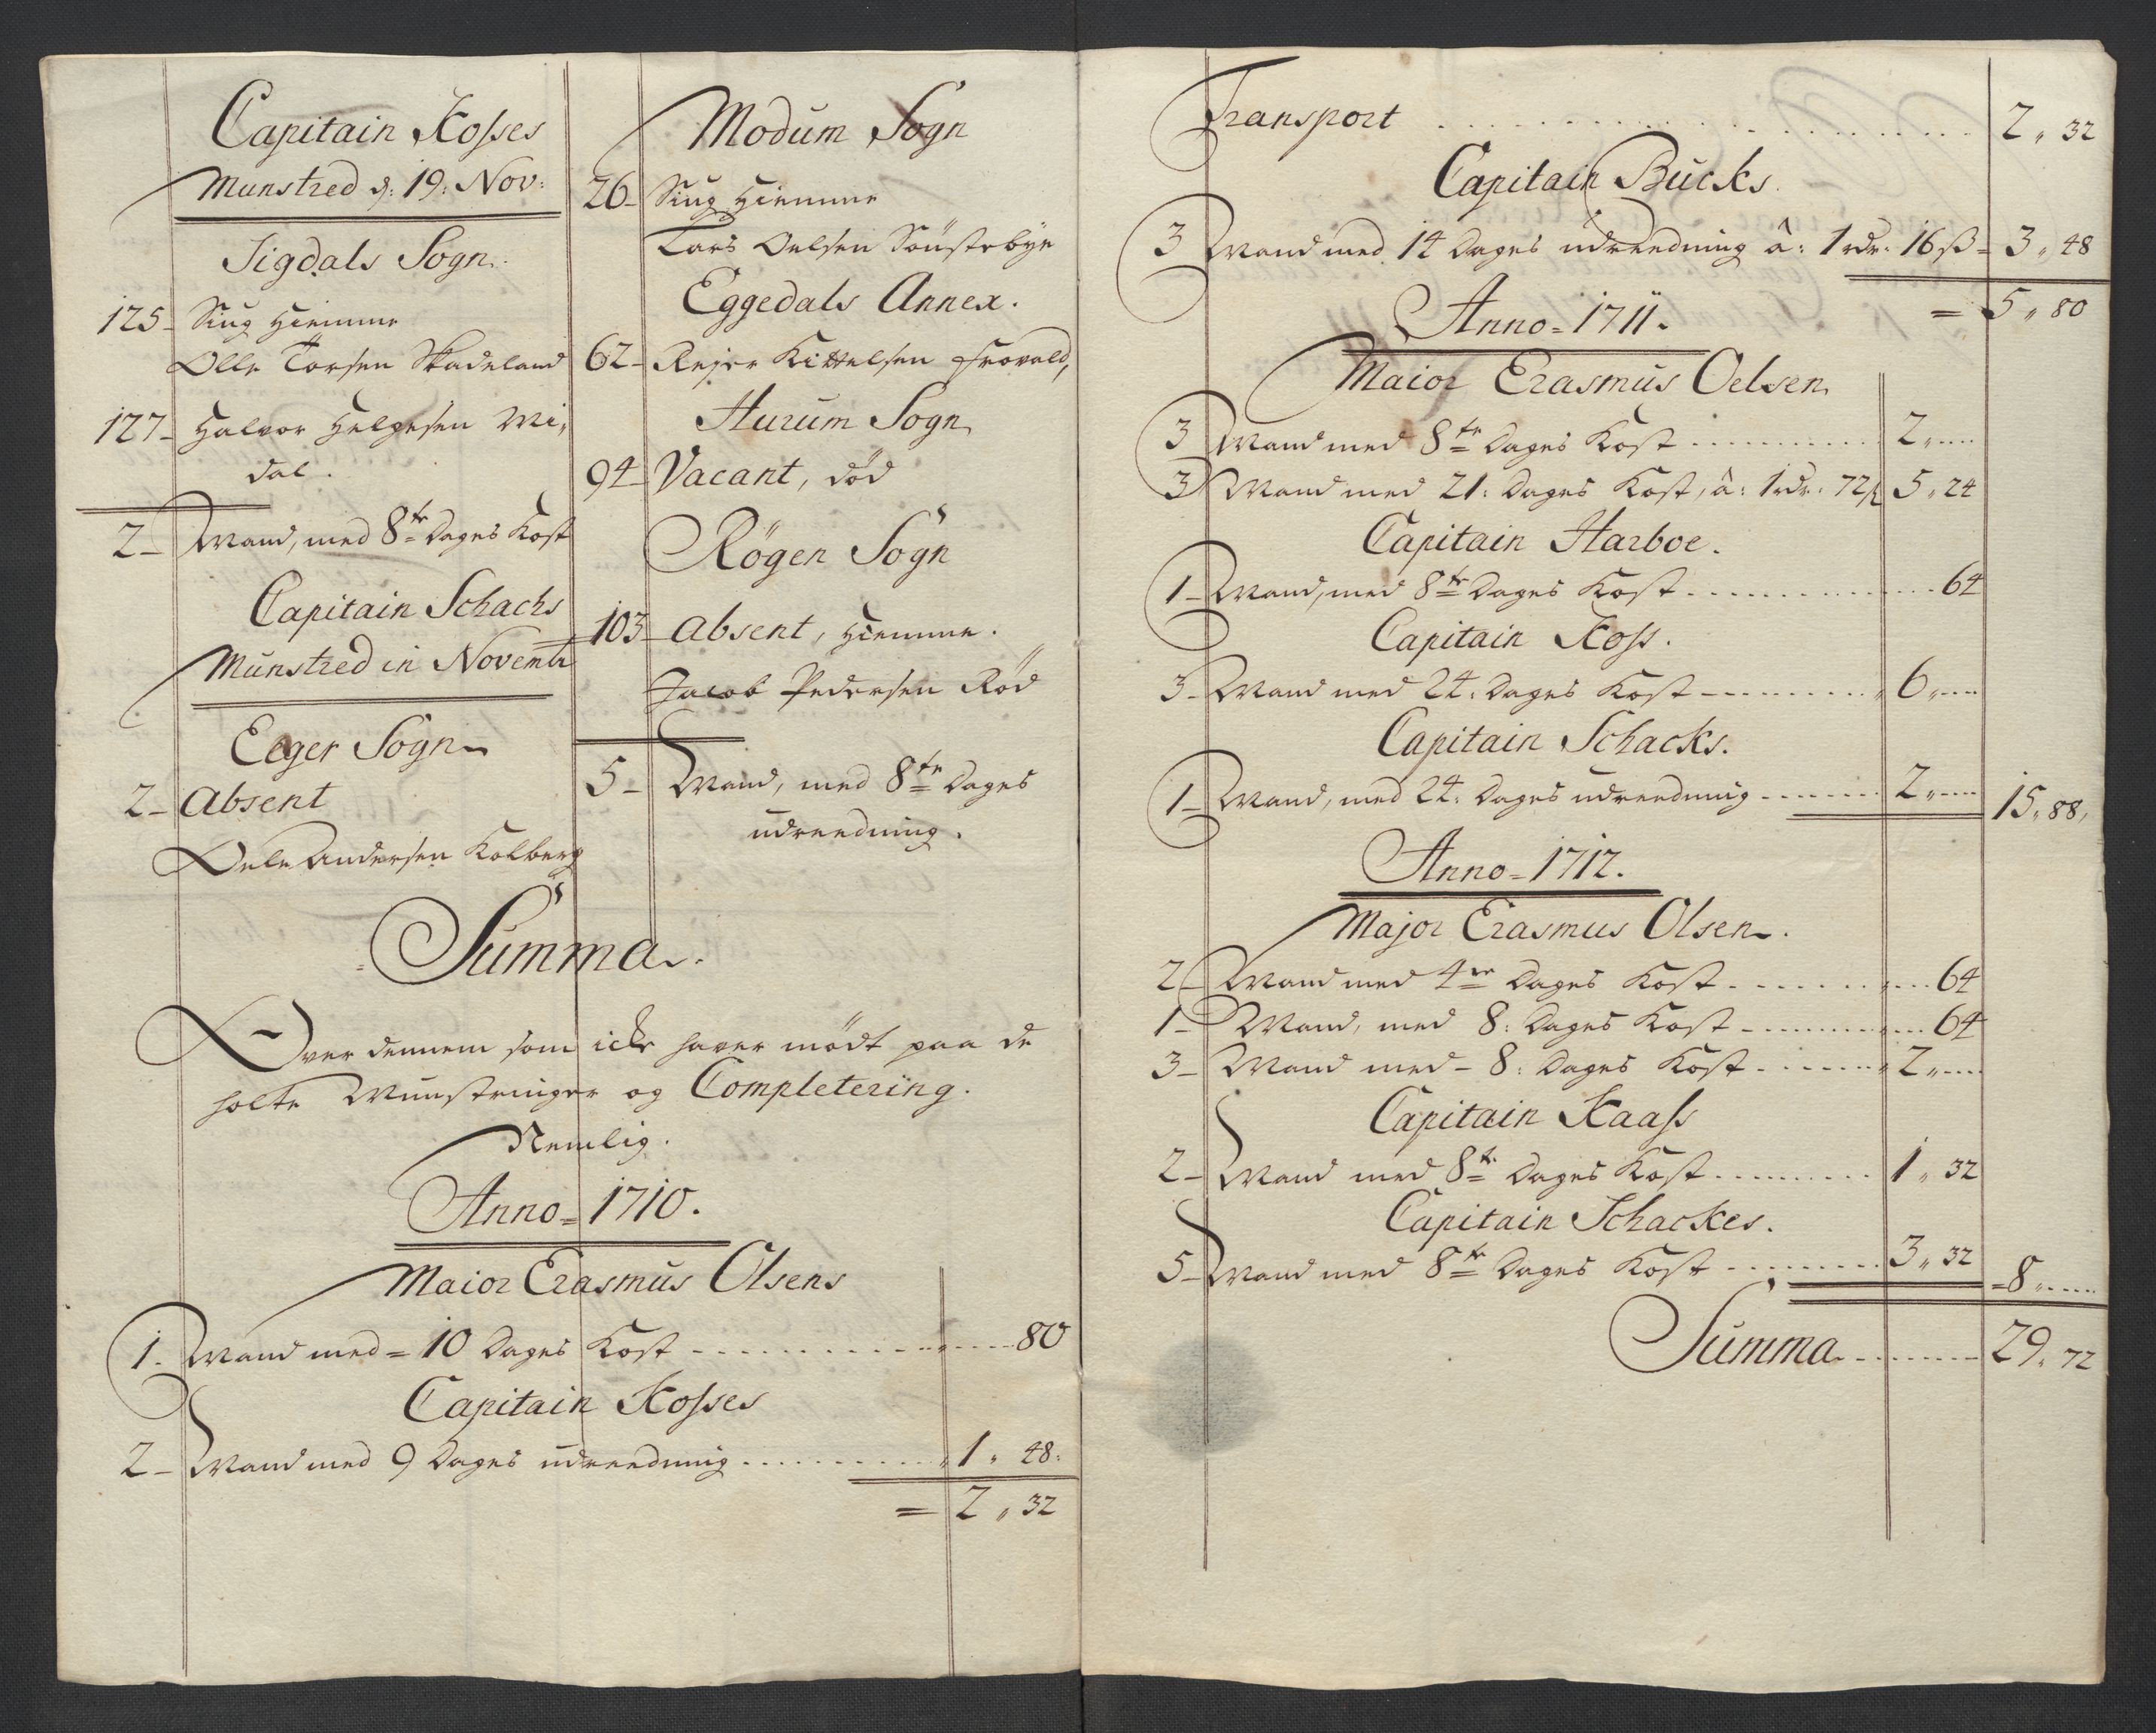 Capitain Kosses
Munstred d: 19: Nov:
Sigdals Sogn.
125 - Siug hiemme
Olle Torsen Skadeland
127 - Halvor Helgesen Mi,
dal.
2 - Mand, med 8te Dages Kost
Capitain Schachs
Munstred in Novembr
Eeger Sogn
2 - Absent
Oele Andersen Kolberg
Modum Sogn
26 - Siug hiemme
Lars Oelsen Sønstebye
Eggedals Annex.
62 - Rejer Kittelsen Frovold,
Hurum Sogn
94 - Vacant, død
Røgen Sogn
103 - Absent, hiemme.
Jacob Pedersen Rød
5 - Mand, med 8te Dages
udreedning.
Summa.
Over dennem som icke haver mødt paa de
holte Munstringer og Completering.
Nemlig.
Anno = 1710.
Maior Erasmus Olsens
1. Mand med = 10 Dages Kost ..... 80
Capitain Kosses
2 - Mand med 9 Dages udreedning ..... 1 " 48:
= 2 " 32
Transport ..... 2 " 32
Capitain Bucks.
3 Mand med 14 Dages udreedning â: 1 rdr. 16 ß = 3 " 48
= 5 " 80
Anno = 1711.
Maior Erasmus Oelsen
3 Mand med 8te Dages Kost ..... 2 " ....
3 Mand med 21: Dages Kost, â: 1 rdr: 72 ß 5 " 24
Capitain Harboe.
1 - Mand, med 8te Dages Kost ..... 64
Capitain Koss.
3 - Mand med 24: Dages Kost ..... 6 " ....
Capitain Schacks.
1 - Mand, med 24: Dages udreedning ..... 2 " .... 15 " 88,
Anno = 1712.
Major Erasmus Olsen.
2 - Mand med 4re Dages Kost ..... 64
1 - Mand, med 8: Dages Kost ..... 64
3 - Mand med - 8: Dages Kost ..... 2 " ....
Capitain Kaass
2 - Mand med 8te Dages Kost ..... 1 " 32
Capitain Schackes.
5 - Mand med 8te Dages Kost ..... 3 " 32 = 8 " ....
Summa ..... 29 " 72